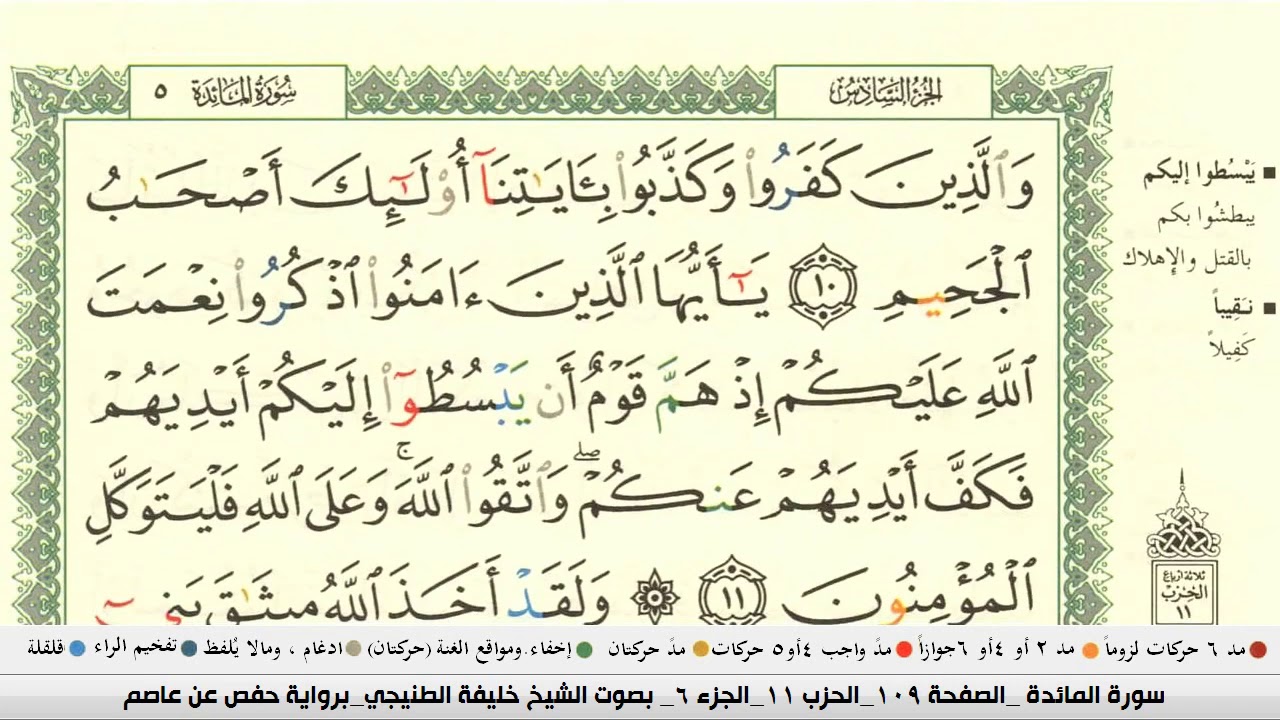 سُورَةُ المَائِدَة ٥
الجُزءُ السَّادِسُ
وَٱلَّذِينَ كَفَرُوا۟ وَكَذَّبُوا۟ بِـَٔايَـٰتِنَآ أُو۟لَـٰٓئِكَ أَصْحَـٰبُ
ٱلْجَحِيمِ ١٠ يَـٰٓأَيُّهَا ٱلَّذِينَ ءَامَنُوا۟ ٱذْكُرُوا۟ نِعْمَتَ
ٱللَّهِ عَلَيْكُمْ إِذْ هَمَّ قَوْمٌ أَن يَبْسُطُوٓا۟ إِلَيْكُمْ أَيْدِيَهُمْ
فَكَفَّ أَيْدِيَهُمْ عَنكُمْ ۖ وَٱتَّقُوا۟ ٱللَّهَ ۚ وَعَلَى ٱللَّهِ فَلْيَتَوَكَّلِ
ٱلْمُؤْمِنُونَ ١١ ۞ وَلَقَدْ أَخَذَ ٱللَّهُ مِيثَـٰقَ بَنِىٓ
■ يَبْسُطوا إليكم
يبطشُوا بكم
بالقتل والإهلاك
■ نَقِيباً
كَفِيلاً
ثلاثة أرباع
الحزب
١١
مد ٦ حركات لزوماً مد ٢ أو ٤ أو ٦ جوازاً مدّ واجب ٤ أو ٥ حركات مدّ حركتان إخفاء. ومواقع الغنة (حركتان) ادغام ، ومالا يُلفظ تفخيم الراء قلقلة
سورة المائدة _الصفحة ١٠٩_الحزب ١١_الجزء ٦_ بصوت الشيخ خليفة الطنيجي_برواية حفص عن عاصم